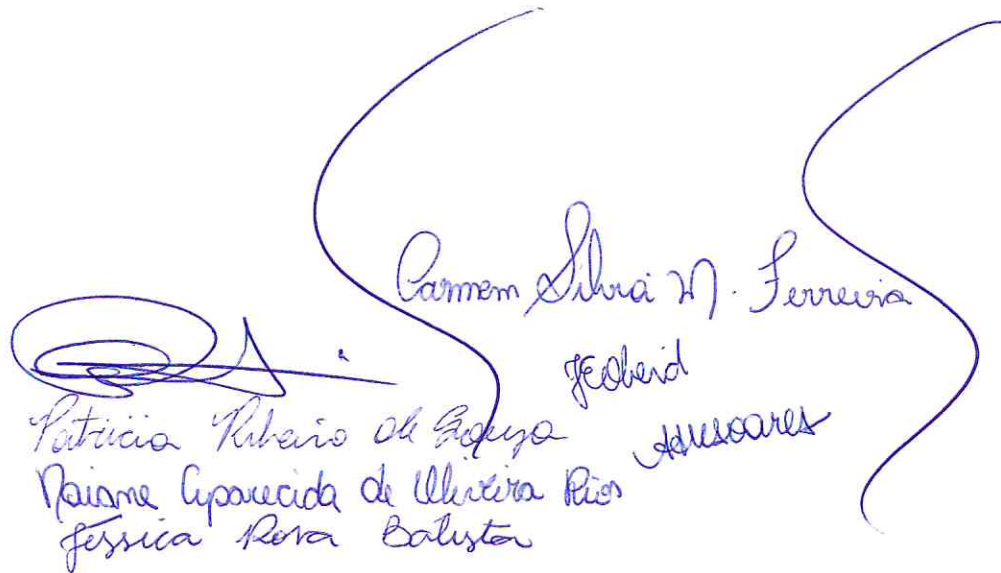 Carmem Silvia M. Ferreira
Patricia Ribeiro de Souza
Naiane Aparecida de Oliveira Rios
Jéssica Rosa Batista